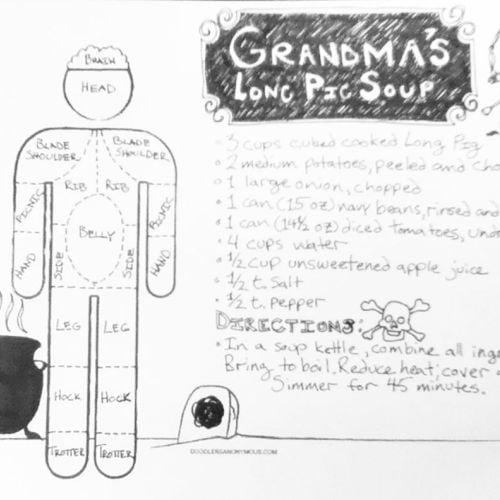 BRAIN
HEAD
BLADE SHOULDER
BLADE SHOULDER
RIB RIB
PICNIC
PICNIC
BELLY
HAND
SIDE
SIDE
HAND
LEG LEG
HOCK HOCK
TROTTER TROTTER
GRANDMA'S
LONG PIG SOUP
3 cups cubed cooked Long Pig
2 medium potatoes, peeled and
1 large onion, chopped
1 can (15 oz) navy beans, rinsed and
1 can (14½ oz) diced tomatoes,
4 cups water
½ cup unsweetened apple juice
½ t. Salt
½ t. Pepper
DIRECTIONS:
In a soup kettle, combine all
Bring to boil. Reduce heat; cover
Simmer for 45 minutes.
DOODLERSANONYMOUS.COM